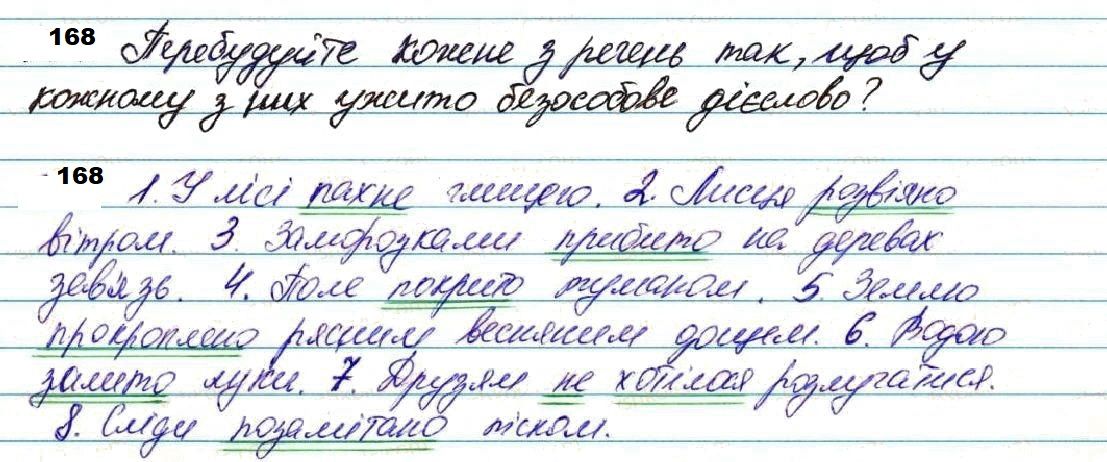 168 Перебудуйте кожене з речень так, щоб у
кожному з них ужито безособове дієслово?
168 1. У лісі пахне глицею. 2. Листя розвіяно
вітром. 3. Заморозками прибито на деревах
зав'язь. 4. Поле покрито туманом. 5. Землю
прокроплено рясним весняним дощем. 6. Водою
залито луки. 7. Друзям не хотілося розлучатися.
8. Сліди позамітано піском.